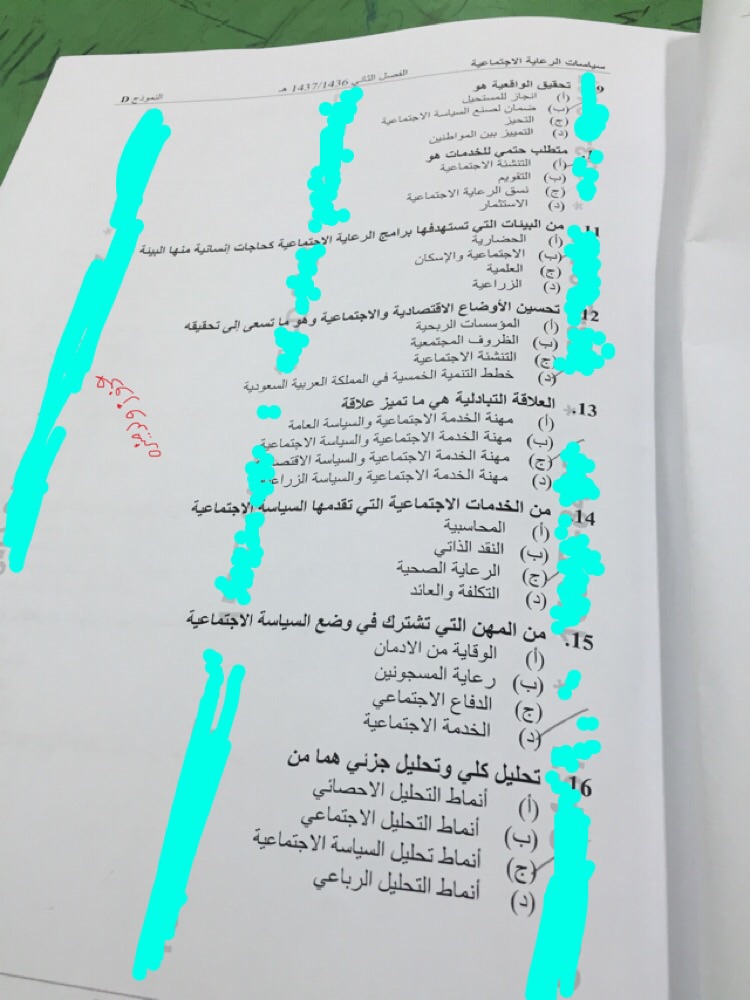 سياسات الرعاية الاجتماعية
الفصل الثاني 1437/1436 هـ
النموذج D
9. تحقيق الواقعية هو
(أ) انجاز للمستحيل
(ب) ضمان لصنع السياسة الاجتماعية
(ج) التحيز
(د) التمييز بين المواطنين
متطلب حتمي للخدمات هو
(أ) التنشئة الاجتماعية
(ب) التقويم
(ج) نسق الرعاية الاجتماعية
(د) الاستثمار
11. من البيئات التي تستهدفها برامج الرعاية الاجتماعية كحاجات إنسانية منها البيئة
(أ) الحضارية
(ب) الاجتماعية والإسكان
(ج) العلمية
(د) الزراعية
12. تحسين الأوضاع الاقتصادية والاجتماعية وهو ما تسعى إلى تحقيقه
(أ) المؤسسات الربحية
(ب) الظروف المجتمعية
(ج) التنشئة الاجتماعية
(د) خطط التنمية الخمسية في المملكة العربية السعودية
13. العلاقة التبادلية هي ما تميز علاقة
(أ) مهنة الخدمة الاجتماعية والسياسة العامة
(ب) مهنة الخدمة الاجتماعية والسياسة الاجتماعية
(ج) مهنة الخدمة الاجتماعية والسياسة
(د) مهنة الخدمة الاجتماعية والسياسة
14. من الخدمات الاجتماعية التي تقدمها السياسة الاجتماعية
(أ) المحاسبية
(ب) النقد الذاتي
(ج) الرعاية الصحية
(د) التكلفة والعائد
15. من المهن التي تشترك في وضع السياسة الاجتماعية
(أ) الوقاية من الادمان
(ب) رعاية المسجونين
(ج) الدفاع الاجتماعي
(د) الخدمة الاجتماعية
16 تحليل كلي وتحليل جزئي هما من
(أ) أنماط التحليل الاحصائي
(ب) أنماط التحليل الاجتماعي
(ج) أنماط تحليل السياسة الاجتماعية
(د) أنماط التحليل الرباعي